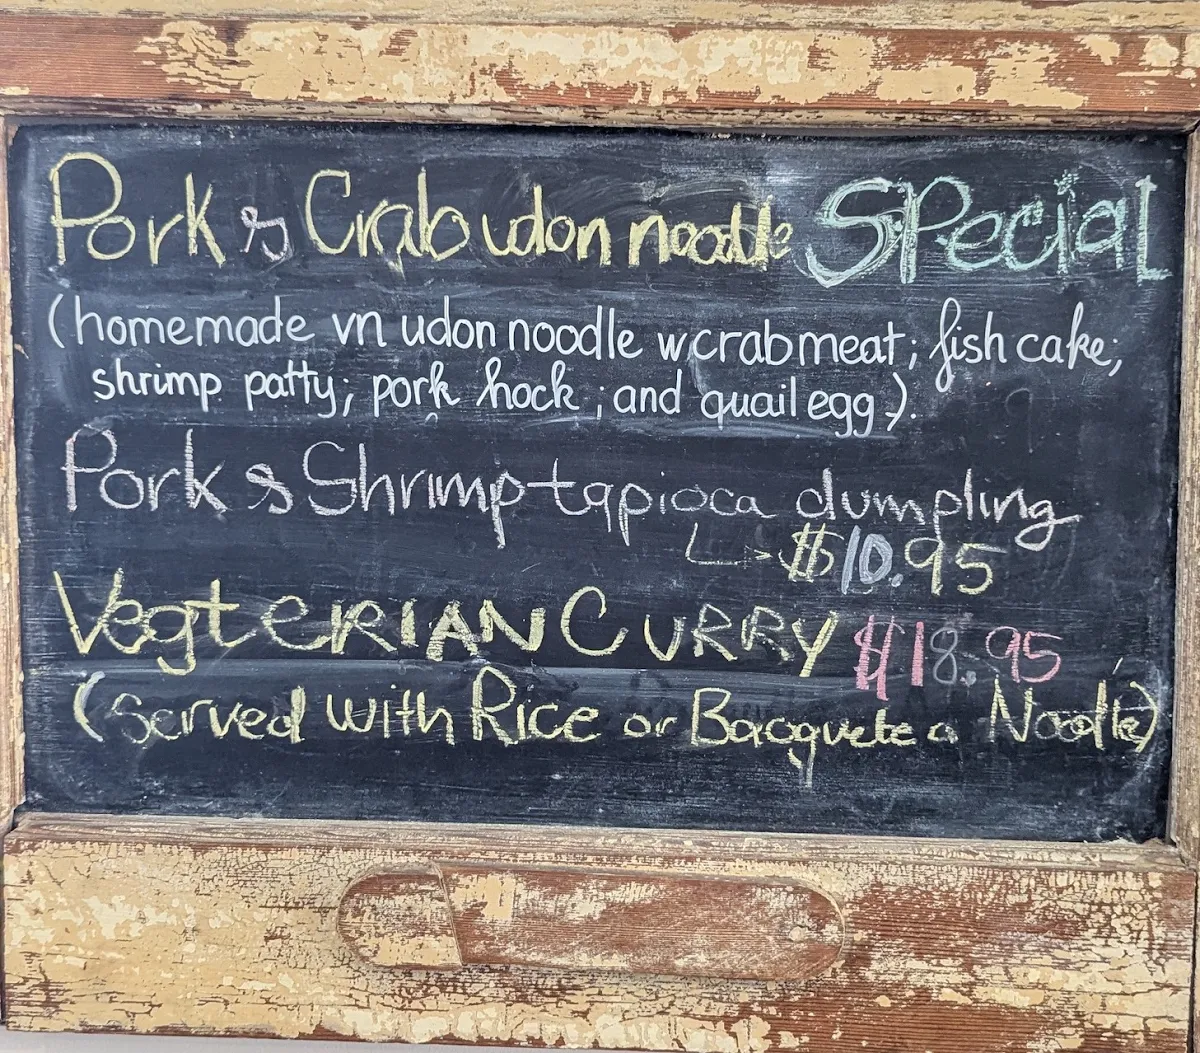 Pork & Crab udon noodle SPecial
(homemade vn udon noodle w crab meat; fish cake;
shrimp patty; pork hock; and quail egg).
Pork & Shrimp tapioca dumpling
$10.95
VegtERIAN CURRY $18.95
(Served with Rice or Bacquete a Noodle)